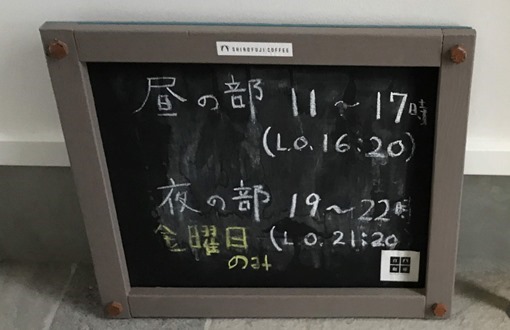 SHINOFUJI COFFEE
昼の部 11〜17時
(L.O.16:20)
夜の部 19〜22時
金曜日 (L.O.21:20
のみ